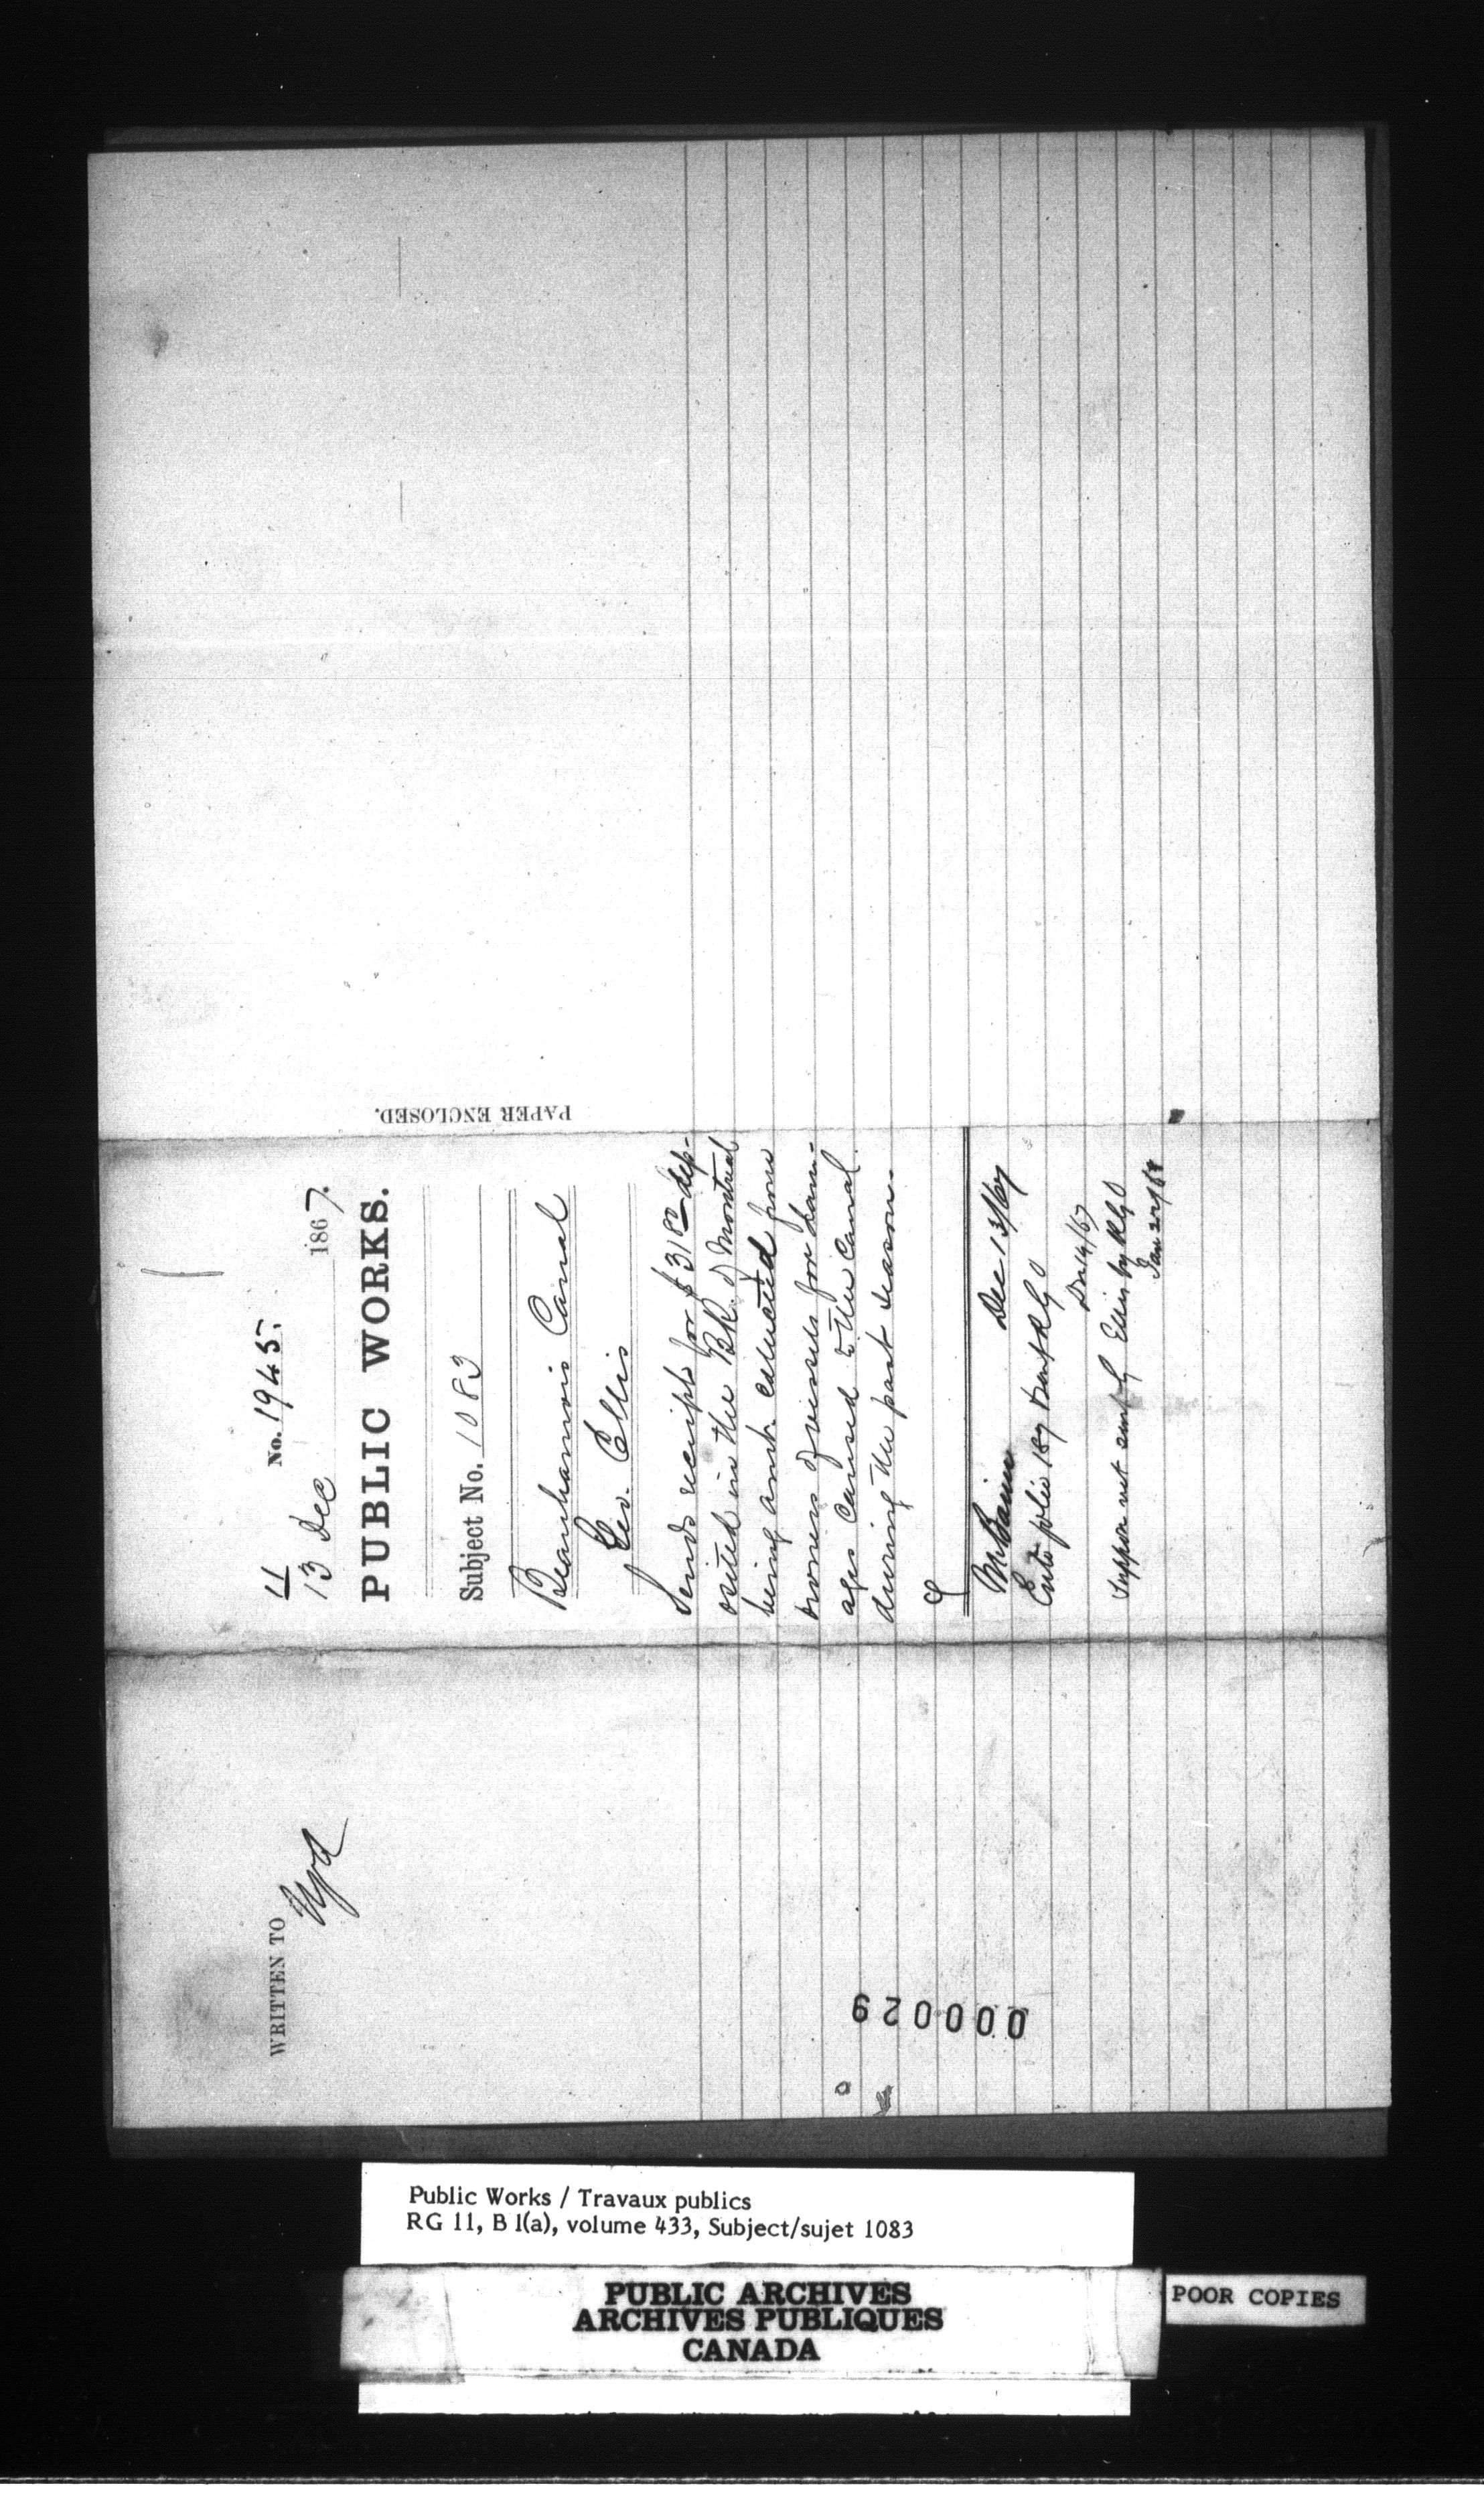 11 No. 1945.
13 Dec 1867.
PUBLIC WORKS.
Subject No. 1083
Beauharnois Canal
Geo. Ellis
Sends receipt for $31 dep-
osited in the Bk. of Montreal
being amt. collected from
owners of vessels for dam-
ages caused to the Canal
during the past season.
Mr Baine Dec 13/67
Ent folio 189
Dec 14/67
Ellis by
Jan 22/68
PAPER ENCLOSED.
WRITTEN TO
000029
Public Works / Travaux publics
RG 11, B 1(a), volume 433, Subject/sujet 1083
PUBLIC ARCHIVES
ARCHIVES PUBLIQUES
CANADA
POOR COPIES